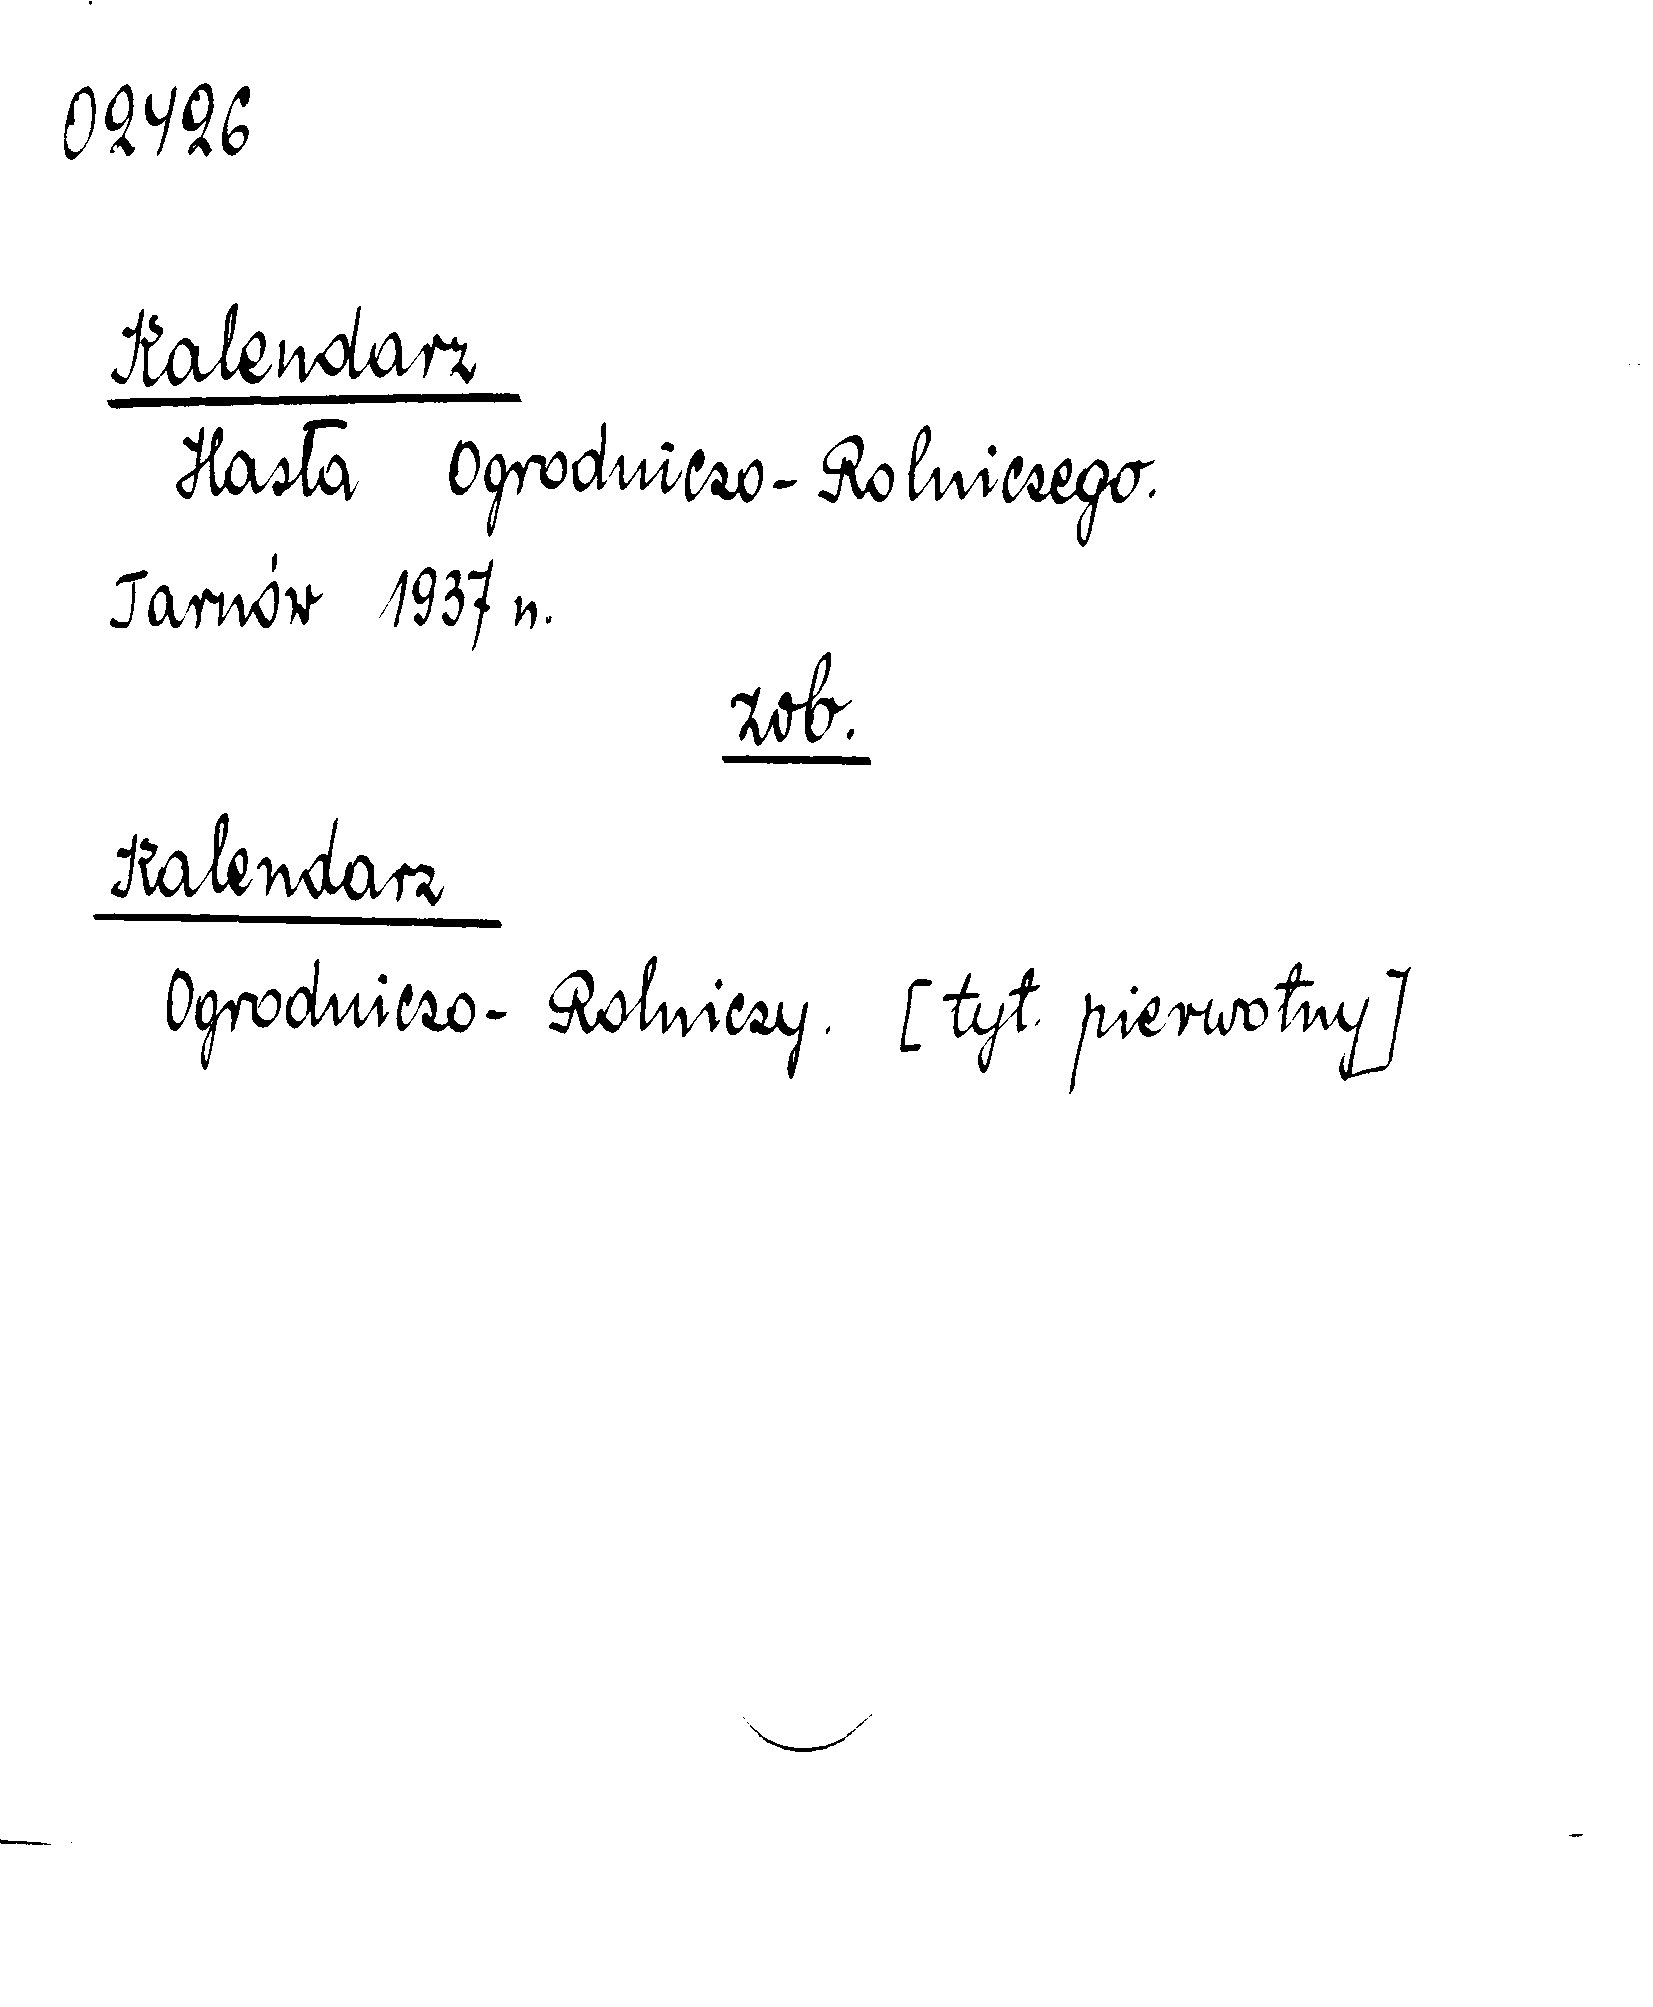 02426
Kalendarz
Hasła Ogrodniczo-Rolniczego.
Tarnów 1937 n.
zob.
Kalendarz
Ogrodniczo-Rolniczy. [tyt. pierwotny]